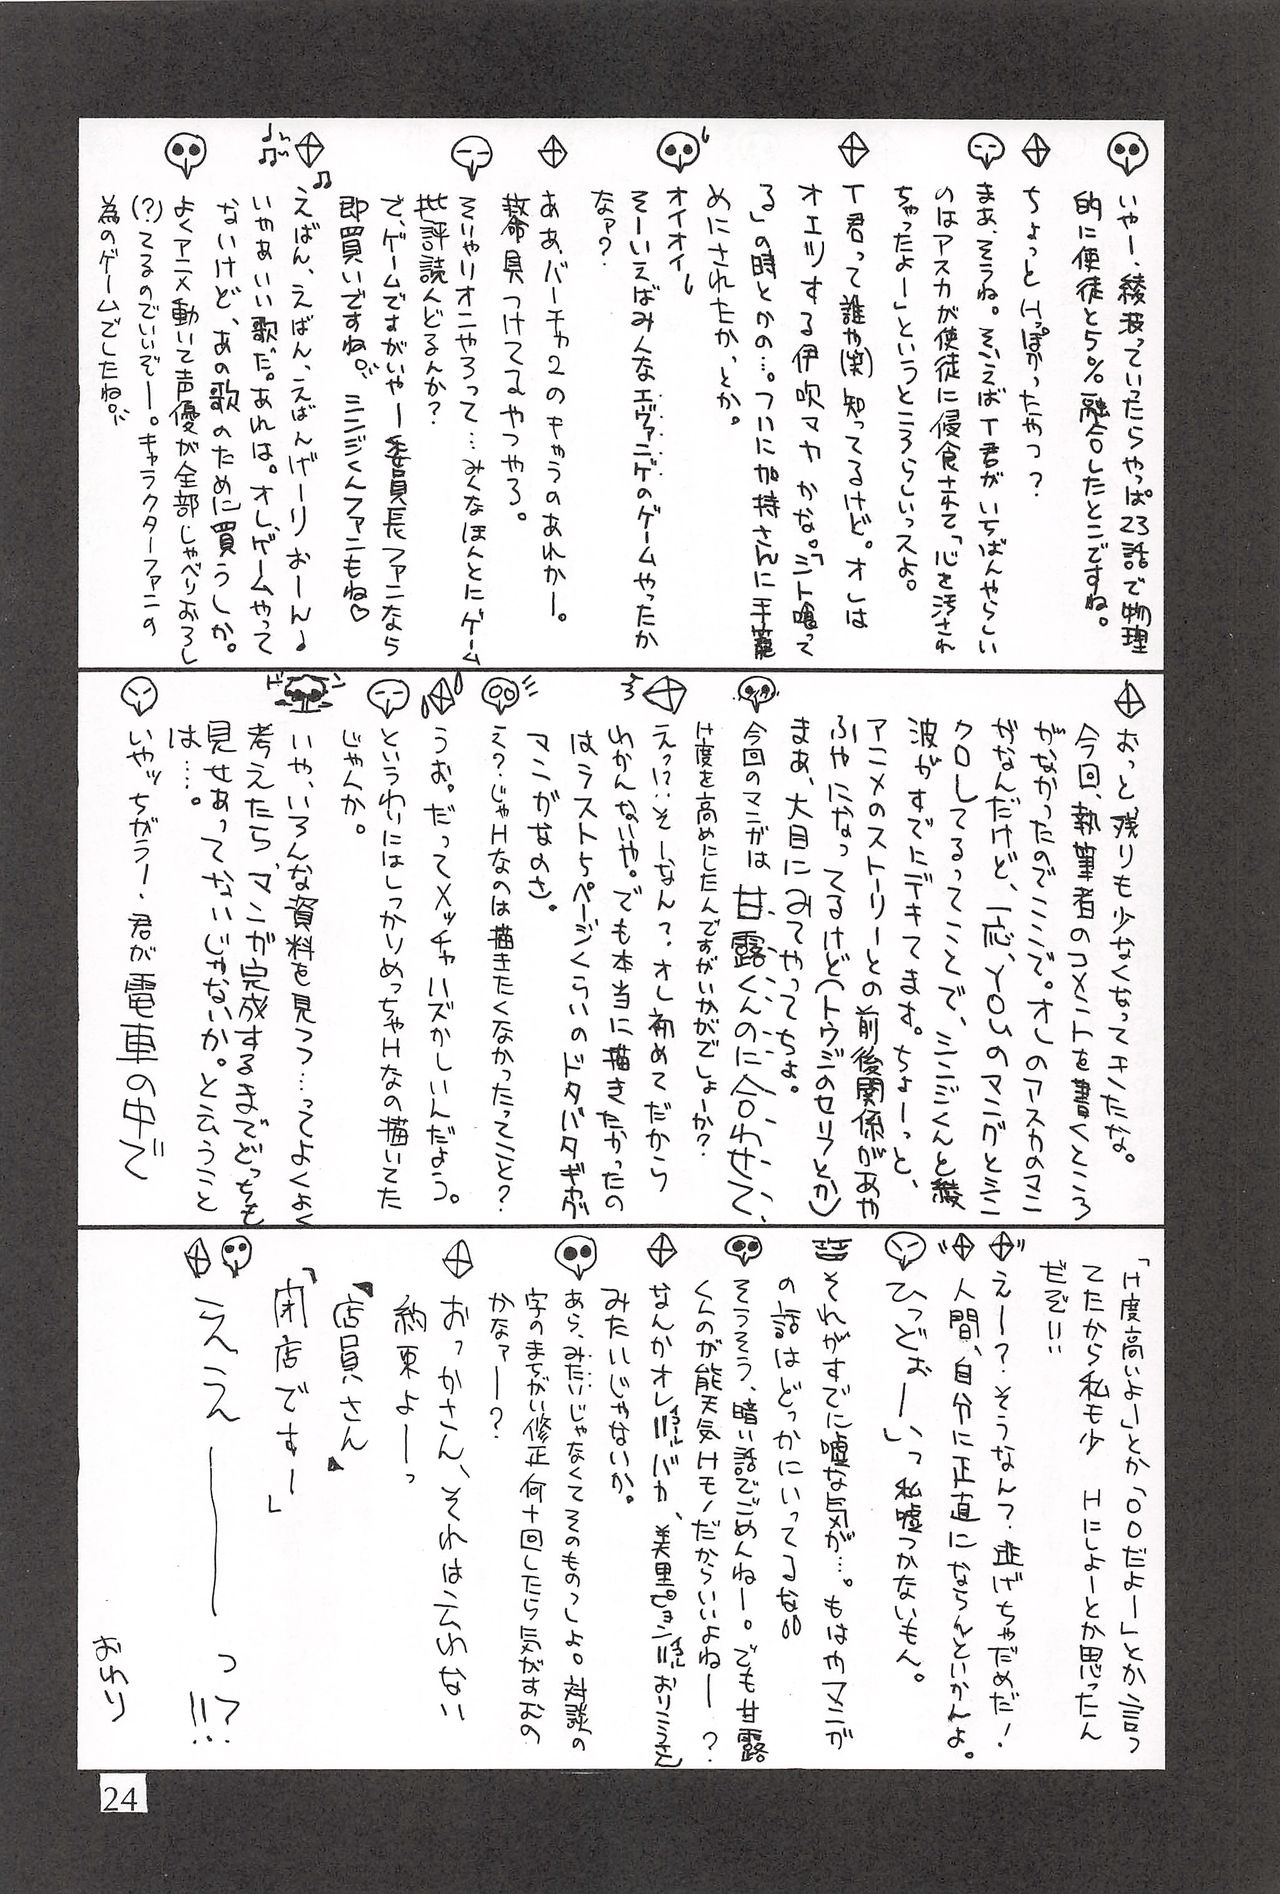 いやー、綾波っていったらやっぱ23話で物理
的に使徒と5%融合したとこですね。
ちょっとHっぽかったやつ?
まあ、そうね。そいえばT君がいちばんやらしい
のはアスカが使徒に侵食されて「心を汚され
ちゃったよー」というところらしいっスよ。
T君って誰や(笑)知ってるけど。オレは
オエツする伊吹マヤかな。「シト喰って
る」の時とかの…。ついに加持さんに手籠
めにされたか、とか。
オイオイ
そーいえばみんなエヴァンゲのゲームやったか
なァ?
ああ、バーチャ2のキャラのあれかー。
救命具つけてるやつやろ。
そりゃリオンやろって…みんなほんとにゲーム
批評読んどるんか?
で、ゲームですがいやー委員長ファンなら
即買いですね。シンジくんファンもね♡
えばん、えばん、えばんげーりおーん♩
いやぁいい歌だ。あれは。オレ、ゲームやって
ないけど、あの歌のために買うしか。
よくアニメ動いて声優が全部しゃべりおろし
(?)てるのでいいぞー。キャラクターファンの
為のゲームでしたね。
おっと残りも少なくなってキたな。
今回、執筆者のコメントを書くところ
がなかったのでここで。オレのアスカのマン
ガなんだけど、一応、YOUのマンガとシン
クロしてるってことで、シンジくんと綾
波がすでにデキてます。ちょーっと、
アニメのストーリーとの前後関係があや
ふやになってるけど(トウジのセリフとか)
まあ、大目にみてやってちょ。
今回のマンガは甘露くんのに合わせて、
H度を高めにしたんですがいかがでしょーか?
えっ!?そーなん?オレ初めてだから
わかんないや。でも本当に描きたかったの
はラスト5ページくらいのドタバタギャグ
マンガなのさ。
え?じゃHなのは描きたくなかったってこと?
うお。だってメッチャハズかしいんだよう。
というわりにはしっかりめっちゃHなの描いてた
じゃんか。
いや、いろんな資料を見つつ…ってよくよく
考えたら、マンガ完成するまでどっちも
見せあってないじゃないか。と云うこと
は…。
いやッちがうー、君が電車の中で
「H度高いよー」とか「〇〇だよー」とか言っ
てたから私も少 Hにしよーとか思ったん
だぞ!!
えー?そうなん?逃げちゃだめだ!
人間、自分に正直にならんといかんよ。
ひっどぉーいっ私嘘つかないもん。
それがすでに嘘な気が…。もはやマンガ
の話はどっかにいってるな
そうそう、暗い話でごめんねー。でも甘露
くんのが能天気Hモノだからいいよねー?
なんかオレ=バカ、美里ぴょん=おりこうさん
イコール
イコール
みたいじゃないか。
あら、みたいじゃなくてそのものっしょ。対談の
字のまちがい修正何十回したら気がすむの
かなァー?
おっかさん、それは云わない
約束よーっ
店員さん
「閉店ですー」
ええーーーっ
!!?…
おわり
24